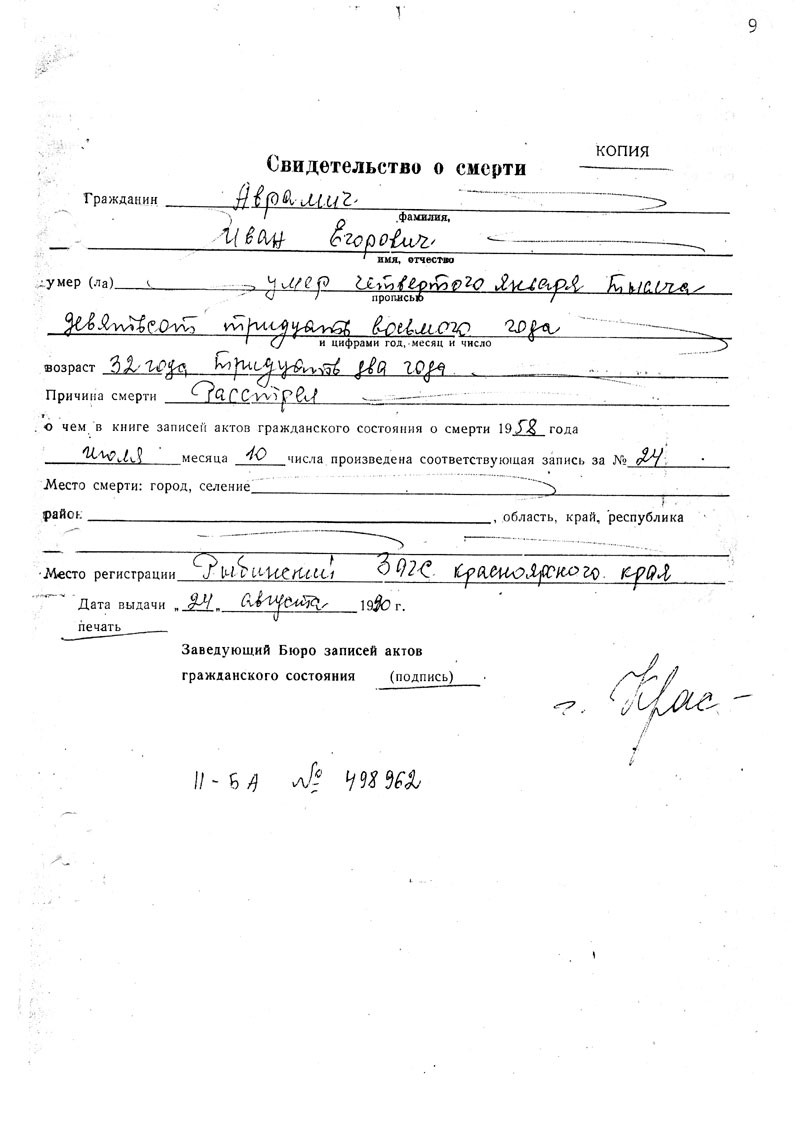 9
КОПИЯ
Свидетельство о смерти
Гражданин Аврамич
фамилия,
Иван Егорович
имя, отчество
умер (ла) умер четвертого января тысяча
прописью
девятьсот тридцать восьмого года
и цифрами год, месяц и число
возраст 32 года тридцать два года
Причина смерти Расстрел
о чем в книге записей актов гражданского состояния о смерти 1958 года
июля месяца 10 числа произведена соответствующая запись за № 24
Место смерти: город, селение
район , область, край, республика
Место регистрации Рыбинский ЗАГС красноярского края
Дата выдачи „24„ августа 1990 г.
печать
Заведующий Бюро записей актов
гражданского состояния (подпись)
г. Крас-
II-БА № 498962